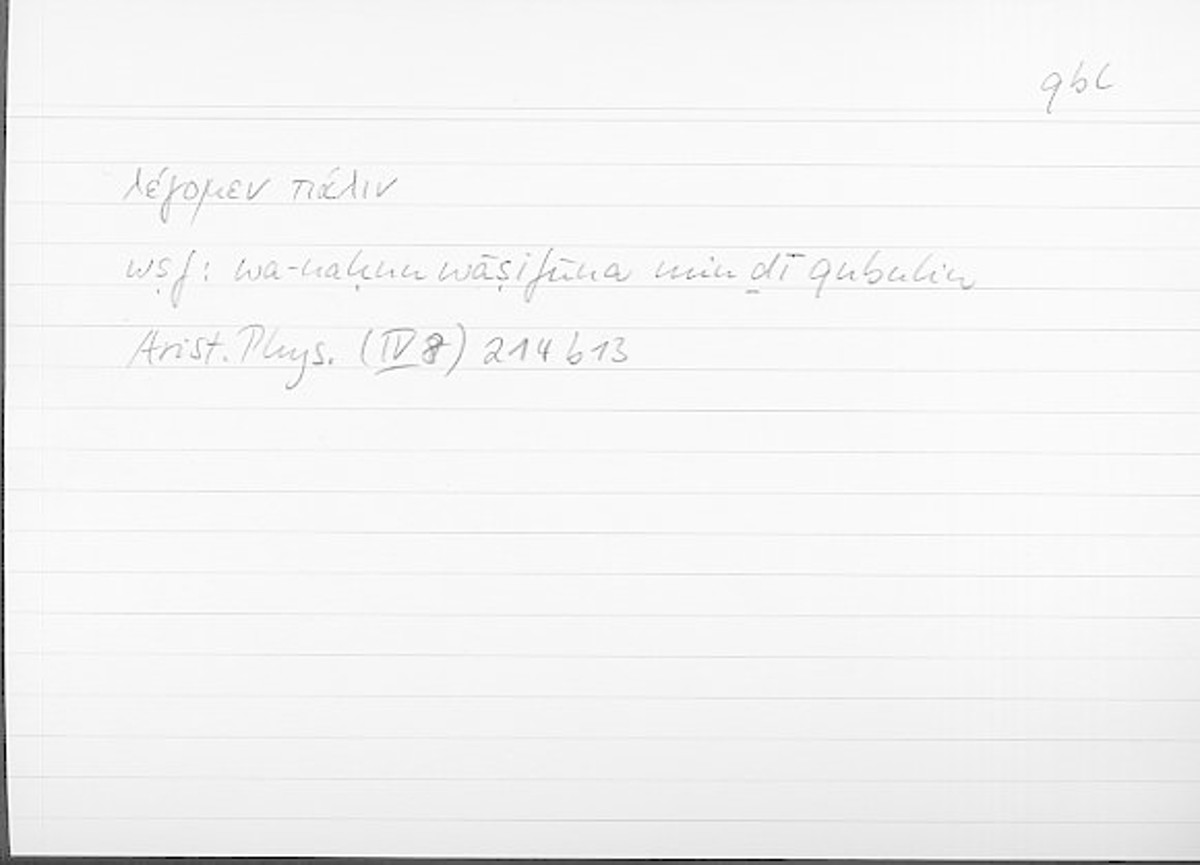 qbl
λέγομεν πάλιν
wṣf: wa-naḥnu wāṣifūna min ḏī qubulin
Arist. Phys. (IV 8) 214 b 13